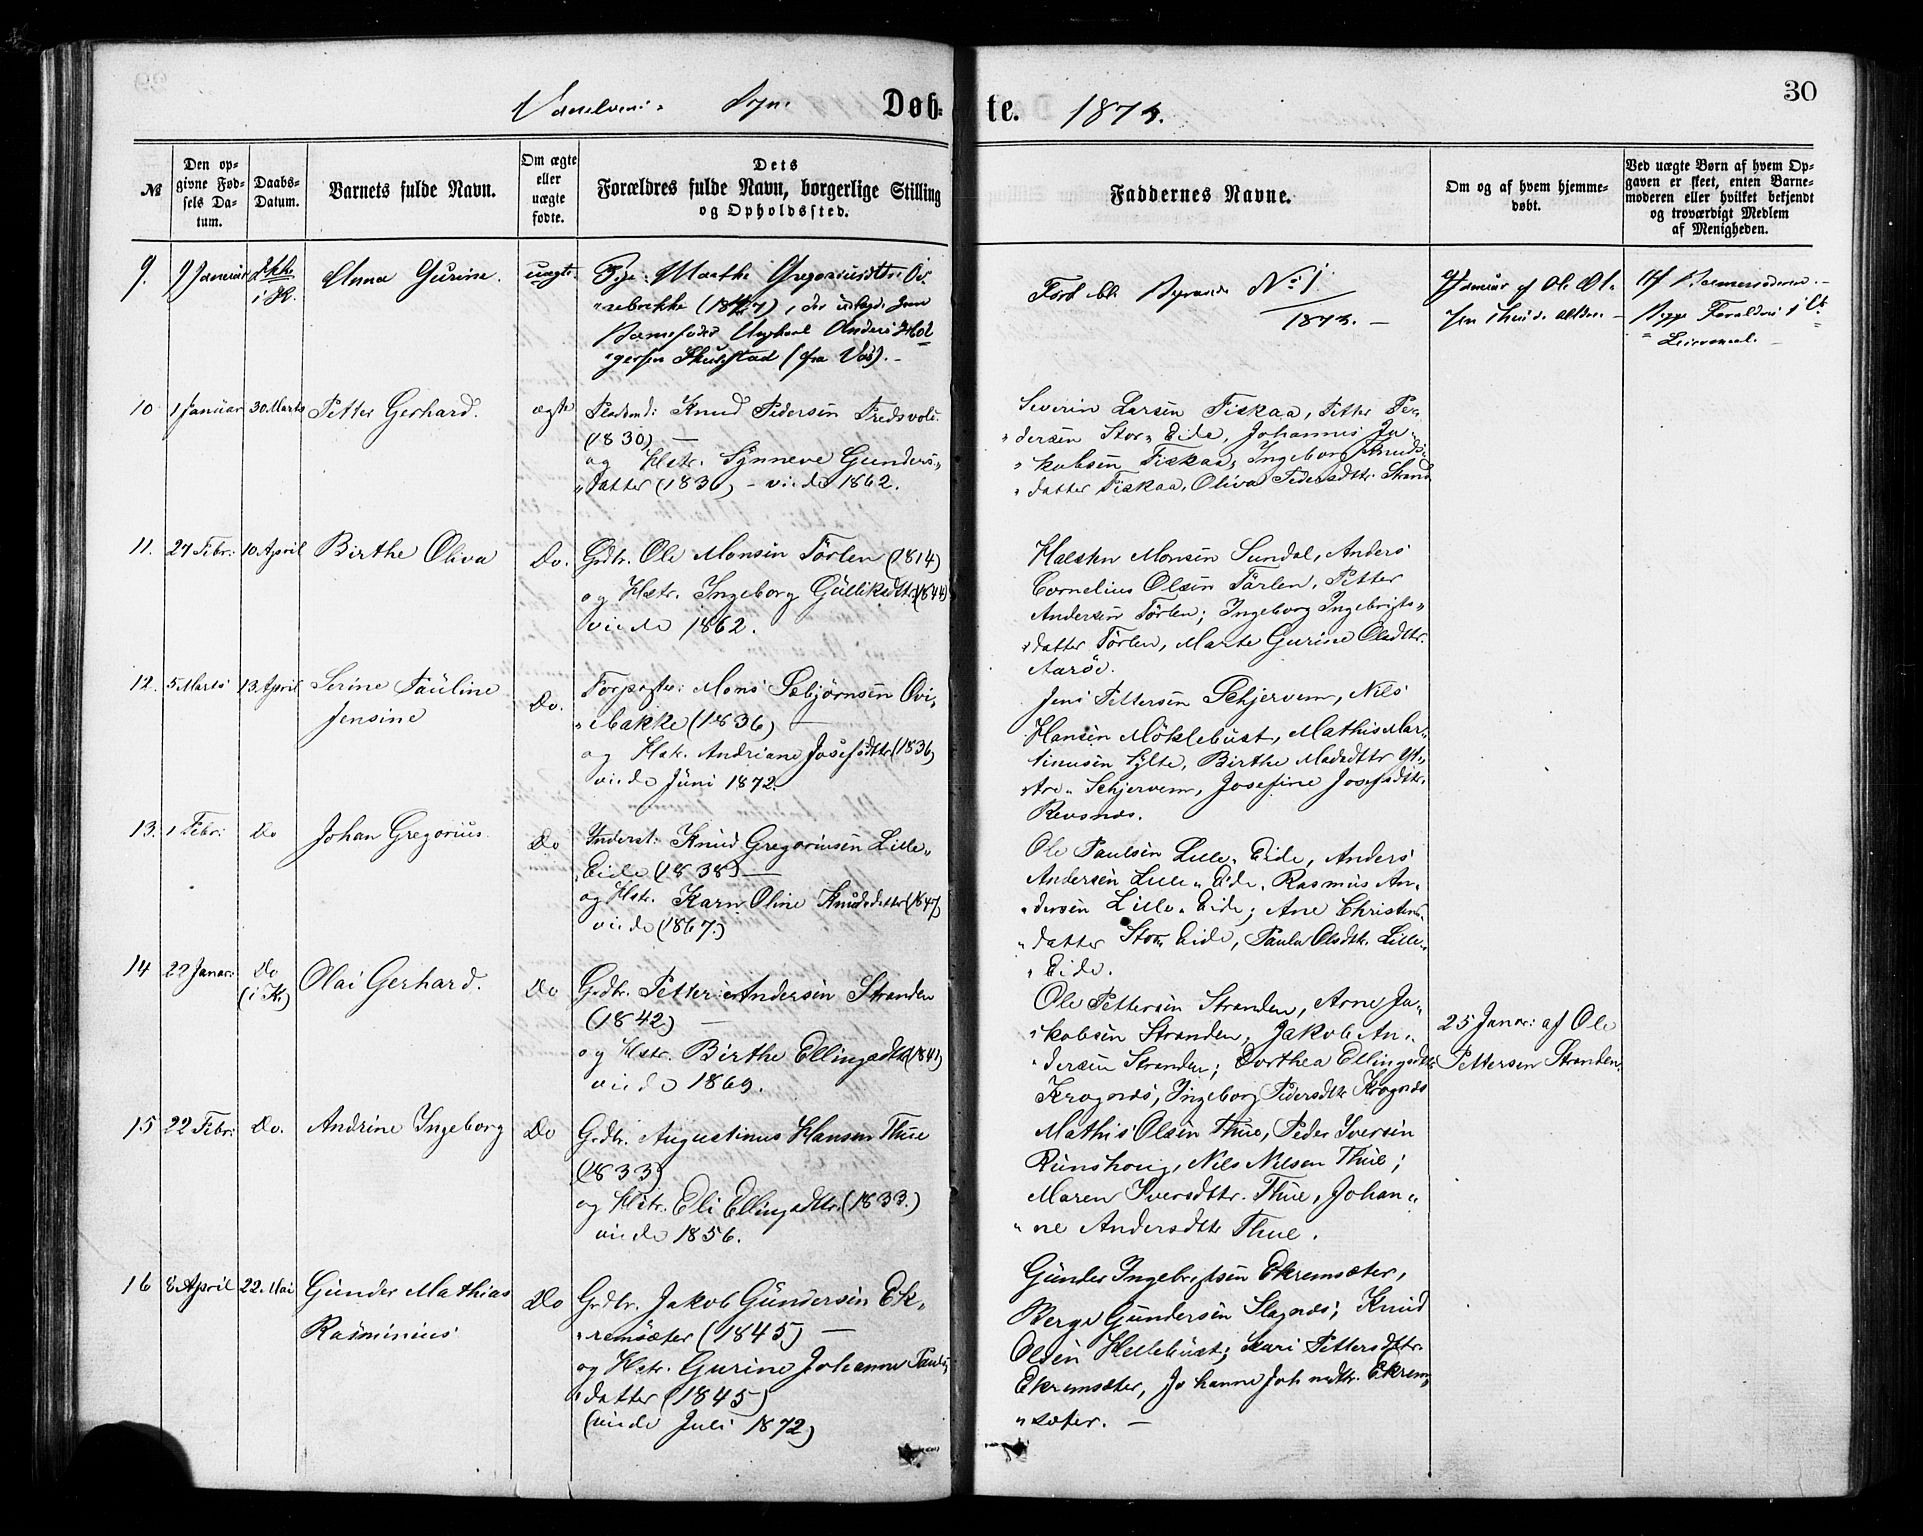 Sogn.
Døb-
te. 1873.
30
№
Den op-
givne Fød-
sels Da-
tum.
Daabs-
Datum.
Barnets fulde Navn.
Om ægte
eller
uægte
fødte.
Dets
Forældres fulde Navn, borgerlige Stilling
og Opholdssted.
Faddernes Navne.
Om og af hvem hjemme-
døbt.
Ved uægte Børn af hvem Op-
gaven er skeet, enten Barne-
moderen eller hvilket bekjendt
og troværdigt Medlem
af Menigheden.
9. 9 Januar
i K.
Anna Gurine.
uægte.
Pige: Marthe Gregoriusdtr.
bakke (1847),
Barnefader Ungkarl Anders Hol-
"gersen Skulestad (fra Vos). –
No 1.
1873. –
Januar af Ole Ol-
Af Barnemoderen. –
10 1 Januar 30 Marts Petter Gerhard.
ægte
Pladsmd: Knud Pedersen Fredsvold.
(1830) —
og Hstr. Synneve Gunders-
"datter (1836) – viede 1862.
Severin Larsen Fiskaa, Petter Pe-
"dersen Stor-Eide, Johannes Ja-
"kobsen Fiskaa, Ingeborg Knuds-
"datter Fiskaa, Oliva Pedersdttr. Strand
11. 27 Febr: 10 April Birthe Oliva
Do.
Grdbr. Ole Monsen Törlen (1814)
og Hstr. Ingeborg Gülliksdttr. (1844)
viede 1862.
Halsten Monsen Sundal, Anders
Cornelius Olsen Törlen, Petter
Andersen Törlen; Ingeborg Ingebrigts-
"datter Törlen, Marte Gurine Olsdttr.
Aaröe.
12. 5 Marts 13 April Serine Pauline
Jensine
Do.
Forpagter: Mons Sæbjörnsen Ovi-
"ebakke (1836) —
og Hstr. Andriane Josefsdttr (1836)
viede Juni 1872.
Jens Pettersen Schjervem, Nils
Hansen Möklebust, Mathis Mar-
tinusen Sylte, Birthe Madsdttr Yt-
"tre- Schjervem, Josefine Josefsdttr.
Revsnæs.
13. 1 Febr: Do Johan Gregorius.
Do
Inderst: Knud Gregoriusen Lille-
"Eide (1838) —
og Hstr. Karn Oline Knudsdatter (1847)
viede (1867.)
Ole Paulsen Lille-Eide, Anders
Andersen Lille-Eide, Rasmus An-
"dersen Lille-Eide; Ane Christens-
"datter Stor Eide, Paula Olsdtr. Lille-
"Eide.
14 22 Januar: Do
(i K.)
Olai Gerhard.
Do
Grdbr. Petter Andersen Stranden
(1842) —
og Hstr. Birthe Ellingsdttr (1841)
viede 1869.
Ole Pettersen Stranden, Arne Ja-
"kobsen Stranden, Jakob An-
"dersen Stranden; Dorthea Ellingsdtr
Kragnæs, Ingeborg Pedersdtr. Kragnæs
25 Januar: af Ole
Pettersen Stranden.
15 22 Febr: Do. Andrine Ingeborg
Do
Grdbr. Augustinus Hansen Thue
(1833)
og Hstr. Eli Ellingsdttr. (1833.)
viede 1856.
Mathis Olsen Thue, Peder Iversen
Runshoug, Nils Nilsen Thue;
Maren Iversdttr. Thue, Johan-
"ne Andersdtr Thue.
16 8 April 22. Mai Günder Mathias
Rasminius
Do
Grdbr. Jakob Gündersen Ek-
"remsæter (1845) —
og Hstr. Gurine Johanne Pauls-
"datter (1845)
(viede Juli 1872)
Günder Ingebrigtsen Ekremsæter,
Berge Gündersen Slagnæs; Knud
Olsen Hellebust; Kari Pettersdttr.
Ekremsæter, Johanne Johnsdtr. Ekrem-
"sæter. —